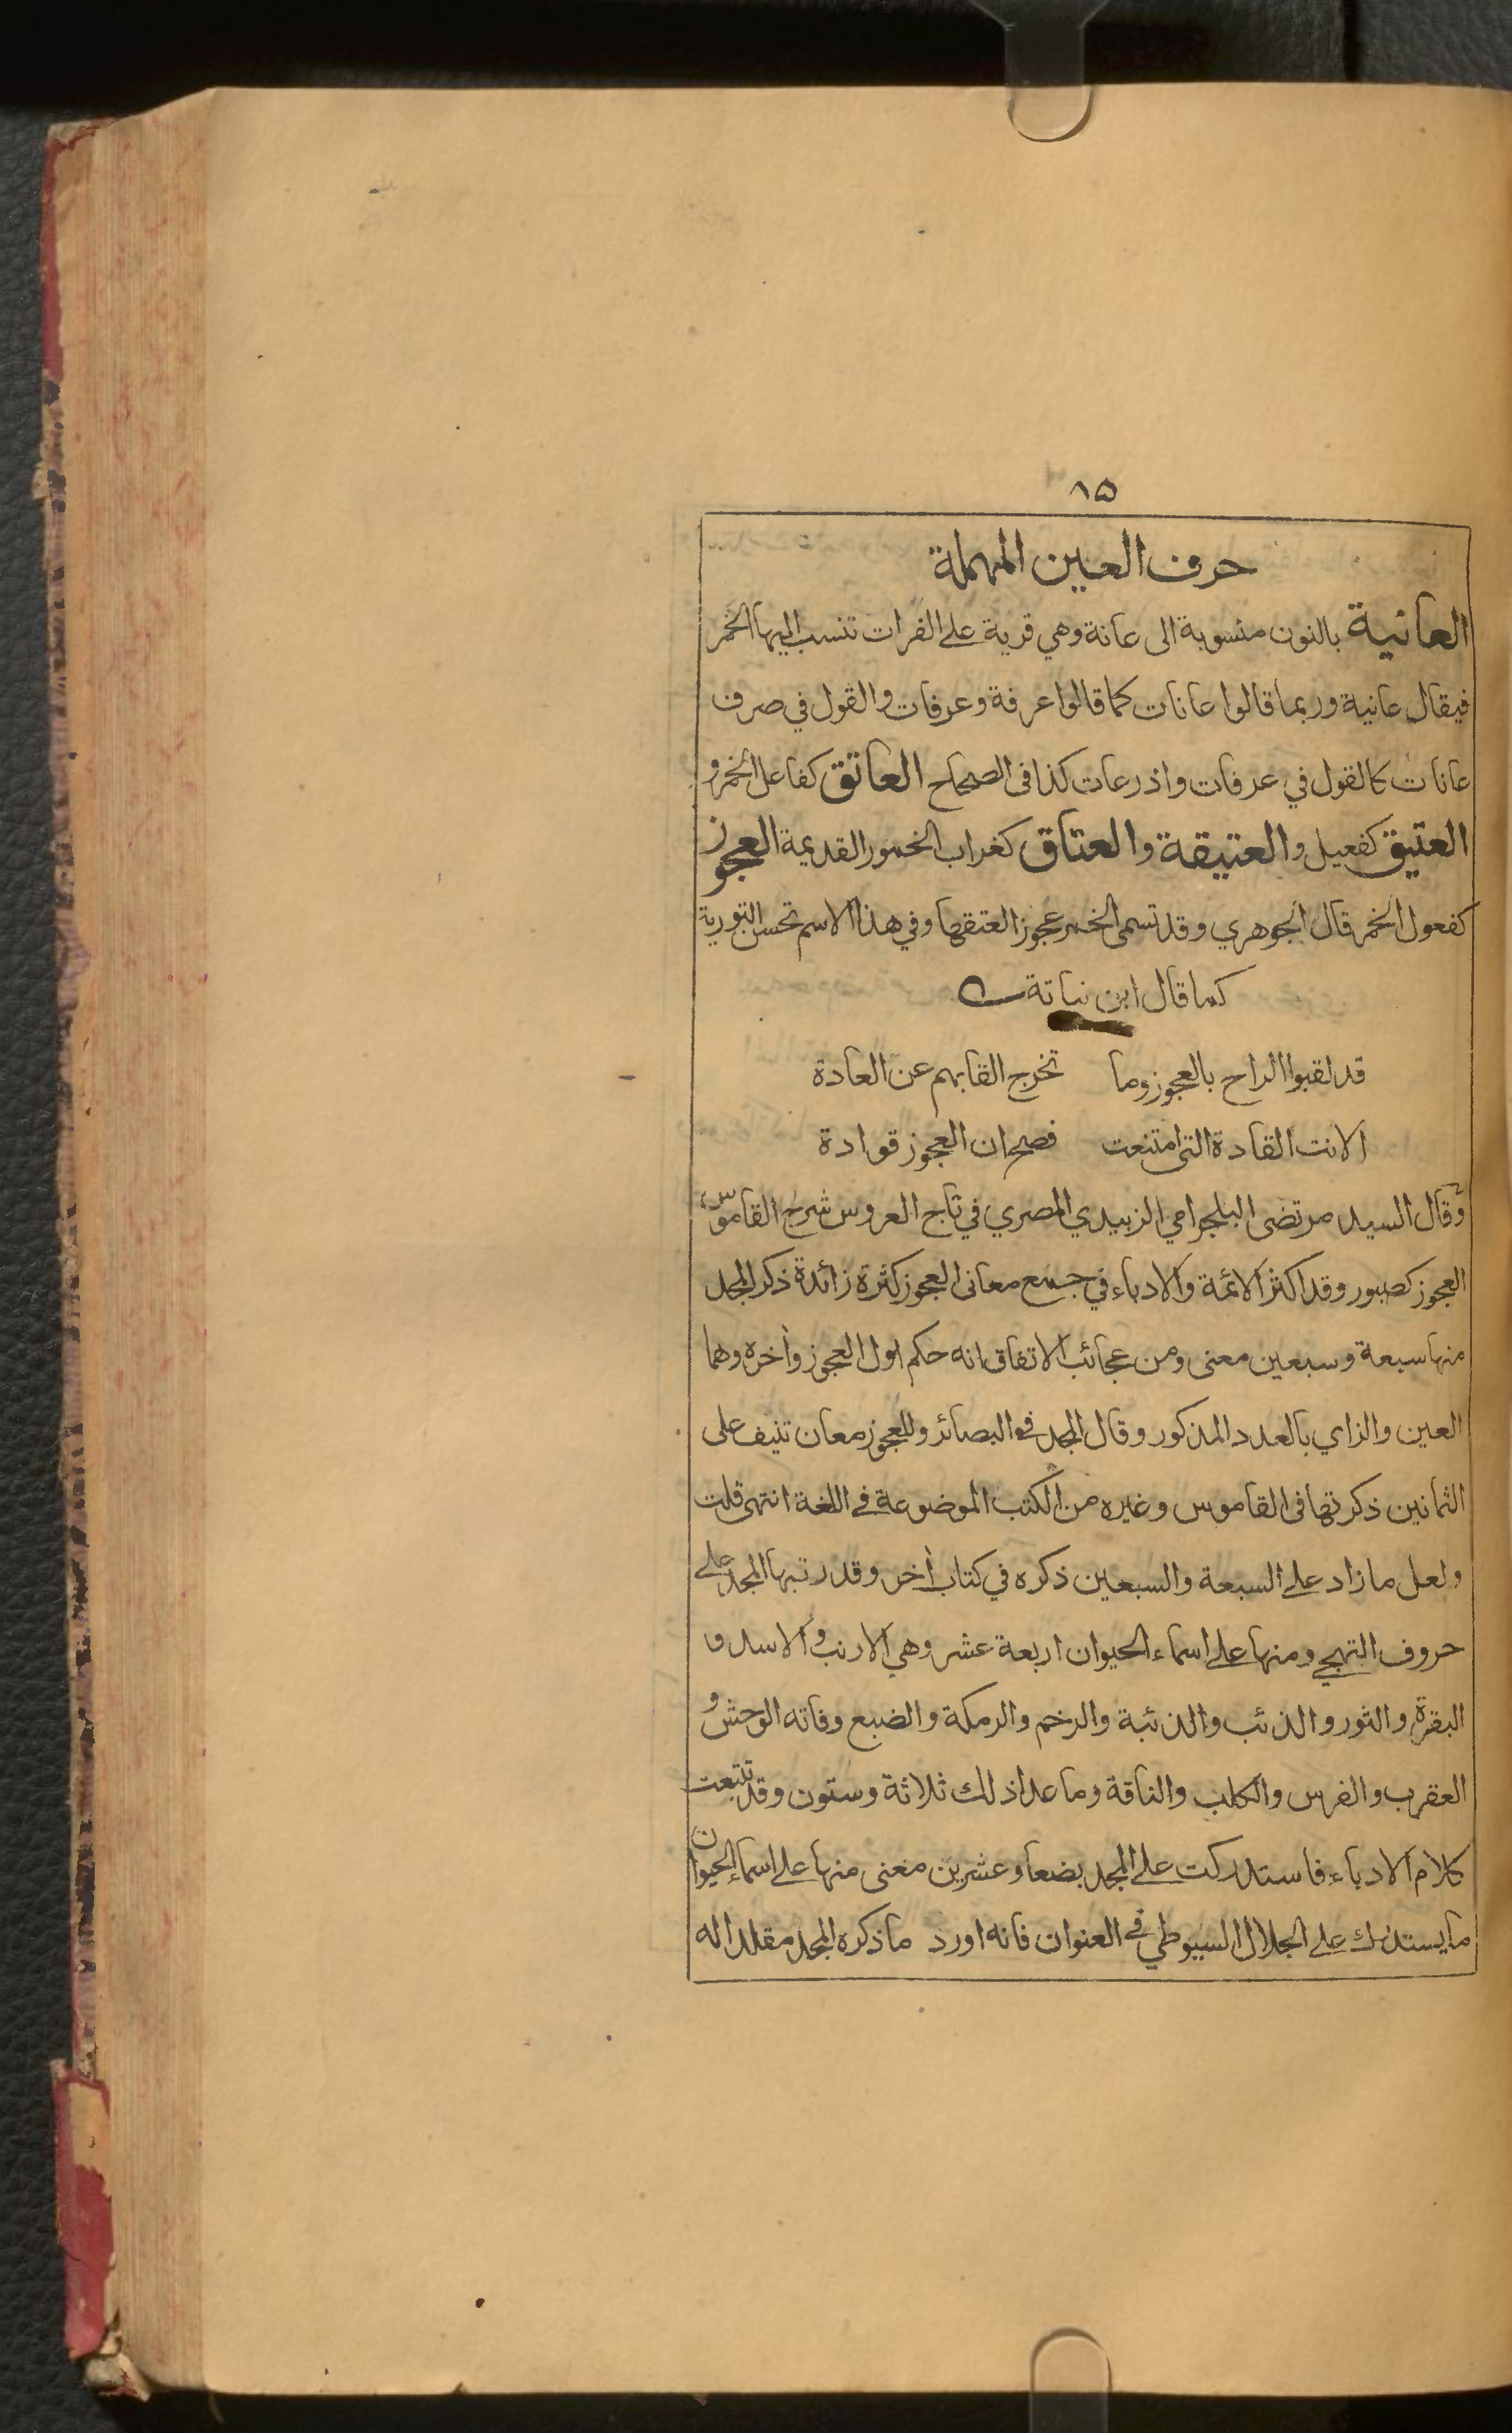 ١٥
حرف العين المهملة
العانية بالنون منسوبة الى عانة وهي قرية على الفرات تنسب اليها الخمر
فيقال عانية وربما قالوا عانات كما قالوا عرفة وعرفات والقول في صرف
عانات كالقول في عرفات واذرعات كذا فى الصحاح العاتق كفاعل الخمر و
العتيق كفعيل والعتيقة والعتاق كغراب الخمور القديمة العجوز
كفعول الخمر قال الجوهري وقد تسمى الخمر عجوز العتقها وفي هذا الاسم تحسن التورية
كما قال ابن نباتة
قد لقبوا الراح بالعجوز وما تخرج القابهم عن العادة
الانت القادة التى امتنعت فصح ان العجوز قوادة
وقال السيد مرتضى البلجرامي الزبيدي المصري في تاج العروس شرح القاموس
العجوز كصبور وقد اكثر الائمة والادباء في جمع معانى العجوز كثرة زائدة ذكر المجد
منها سبعة وسبعين معنى ومن عجائب الاتفاق انه حكم اول العجوز وأخره وهما
العين والزاي بالعدد المذكور وقال المجد فى البصائر وللعجوز معان تنيف على
الثمانين ذكرتها فى القاموس وغيره من الكتب الموضوعة فى اللغة انتهى قلت
ولعل ما زاد على السبعة والسبعين ذكره في كتاب أخر وقد رتبها المجد على
حروف التهجي ومنها على اسماء الحيوان اربعة عشر وهي الارنب والاسد و
البقرة والثور والذئب والذئبة والرخم والرمكة والضبع وفاته الوحش و
العقرب والفرس والكلب والناقة وما عدا ذلك ثلاثة وستون وقد تتبعت
كلام الادباء فاستدركت على المجد بضعا وعشرين معنى منها على اسماء الحيوان
ما يستدرك على الجلال السيوطي في العنوان فانه اورد ما ذكره المجد مقلدا له